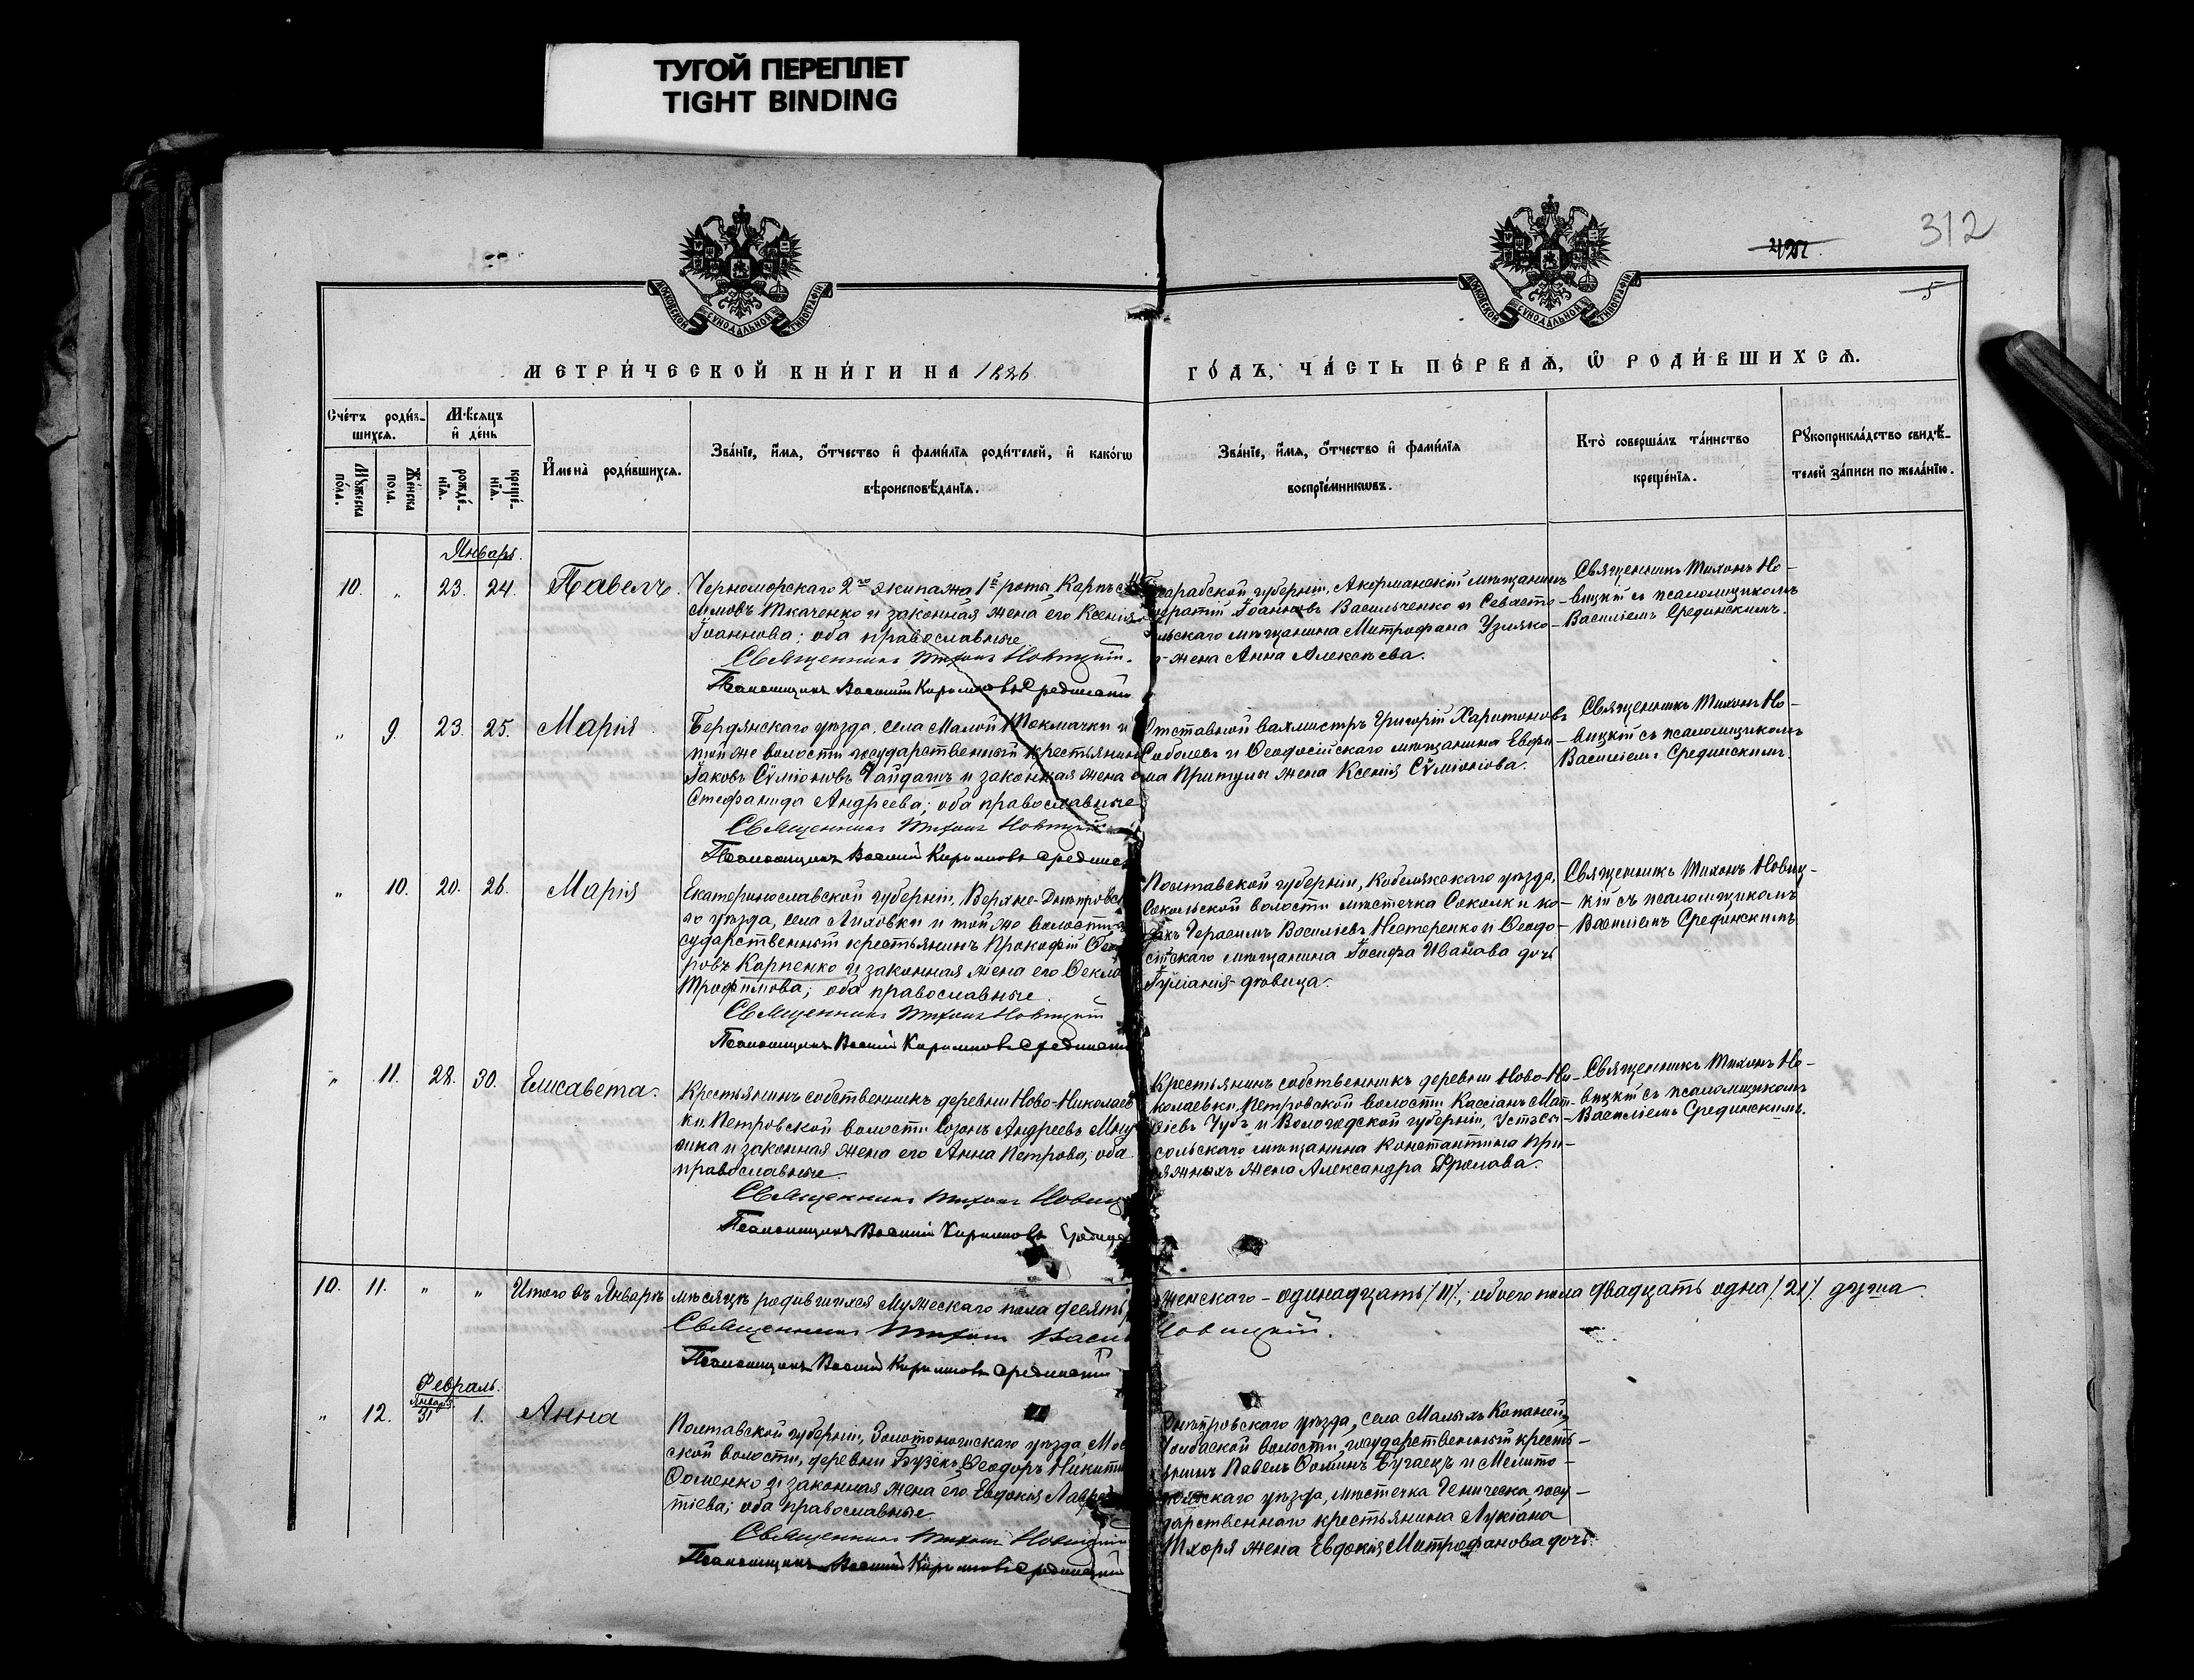 ТУГОЙ ПЕРЕПЛЕТ
TIGHT BINDING
312
5
МОСКОВСКОЙ СѴНОДАЛЬНОЙ ТИПОГРАФІИ
МОСКОВСКОЙ СѴНОДАЛЬНОЙ ТИПОГРАФІИ
МЕТРИ́ЧЕСКОЙ КНИ́ГИ НА 1886
ГО́ДЪ, ЧА́СТЬ ПЕ́РВАѦ, Ѽ РОДИ́ВШИХСѦ.
Сче́тъ роди́в-
шихсѧ.
Мѣ́сѧцъ
и҆ де́нь
Мꙋ́жеска по́ла.
Же́нска по́ла.
рожде́-нїѧ.
креще́-нїѧ.
И҆мена̀ роди́вшихсѧ.
Зва́нїе, и҆́мѧ, ѻ҆́тчество и҆ фами́лїѧ роди́телей, и҆ како́гѡ
вѣроисповѣ́данїѧ.
Зва́нїе, и҆́мѧ, ѻ҆́тчество и҆ фами́лїѧ
воспрїе́мникѡвъ.
Кто̀ соверша́лъ та́инство
креще́нїѧ.
Рꙋкоприкла́дство свидѣ́-
телей за́писи по жела́нїю.
Январь.
10. „ 23. 24. Павелъ.
Черноморскаго 2го экипажа 1й роты Карпъ
симовъ Ткаченко и законная жена его Ксенія
Іоаннова; оба православные
Священникъ Тихонъ Новицкій.
Псаломщикъ Василій Кириловъ Срединскій
Бессарабской губерніи, Акерманскій мѣщанинъ
Іоанновъ Васильченко и Севасто-
польскаго мѣщанина Митрофана
жена Анна Алексѣева.
Священникъ Тихонъ Но-
вицкій съ псаломщикомъ
Василіемъ Срединскимъ.
„ 9. 23. 25. Марія
Бердянскаго уѣзда, села Малой Токмачки и
той же волости государственный крестьянинъ
Іаковъ Сѵміоновъ Гайдашъ и законная жена его
Стефанида Андреева; оба православные
Священникъ Тихонъ Новицкій
Псаломщикъ Василій Кириловъ Срединскій
Отставной вахмистръ Григорій Харитоновъ
Соболевъ и Ѳеодосійскаго мѣщанина Евфи-
ма Притулы жена Ксенія Сѵміонова.
Священникъ Тихонъ Но-
вицкій съ псаломщикомъ
Василіемъ Срединскимъ.
„ 10. 20. 26. Марія
Екатеринославской губерніи, Верхне-Днѣпровска
го уѣзда, села Лиховки и той же волости го
сударственный крестьянинъ Прокофій Ѳеодо
ровъ Карпенко и законная жена его Ѳекла
Трофимова; оба православные.
Священникъ Тихонъ Новицкій
Псаломщикъ Василій Кириловъ Срединскій
Полтавской губерніи, Кобелякскаго уѣзда,
Сокольской волости мѣстечка Соколки ко-
закъ Герасимъ Василіевъ Нестеренко и Ѳеодо-
сійскаго мѣщанина Іосифа Иванова дочь
Іуліанія девица.
Священникъ Тихонъ Новиц-
кій съ псаломщикомъ
Василіемъ Срединскимъ
„ 11. 28. 30. Елисавета.
Крестьянинъ собственникъ деревни Ново-Николаев
ки, Петровской волости Созонъ Андреевъ
и законная жена его Анна Петрова; оба
православные
Священникъ Тихонъ Новиц
Псаломщикъ Василій Кириловъ Срединс
Крестьянинъ собственникъ деревни Ново-Ни-
колаевки, Петровской волости Кассіанъ Мат-
ѳіевъ Чубъ и Вологодской губерніи, Устьсы-
сольскаго мѣщанина Константина При-
жена Александра Фролова.
Священникъ Тихонъ Но-
вицкій съ псаломщикомъ
Василіемъ Срединскимъ.
10. 11. „ „ Итого въ Январѣ мѣсяцѣ родившихся мужескаго пола десять, женскаго - одинадцать /11/, обоего пола двадцать одна /21/ душа.
Священникъ Тихонъ Васил Новицкій.
Псаломщикъ Василій Кириловъ Срединскій
Февраль.
Января
„ 12. 31 1. Анна
Полтавской губерніи, Золотоношскаго уѣзда,
ской волости, деревни Бузекъ, Ѳеодоръ Никити
Ѳоменко и законная жена его Евдокія Лаврен
тіева; оба православные
Священникъ Тихонъ Новицкій
Псаломщикъ Василій Кириловъ Срединскій
Днѣпровскаго уѣзда, села Малыхъ Копаней,
волости, государственный кресть-
янинъ Павелъ Ѳоминъ Бугаецъ и Мелито-
польскаго уѣзда, мѣстечка Геническа, госу-
дарственнаго крестьянина Лукіана
Тхоря жена Евдокія Митрофанова дочь.